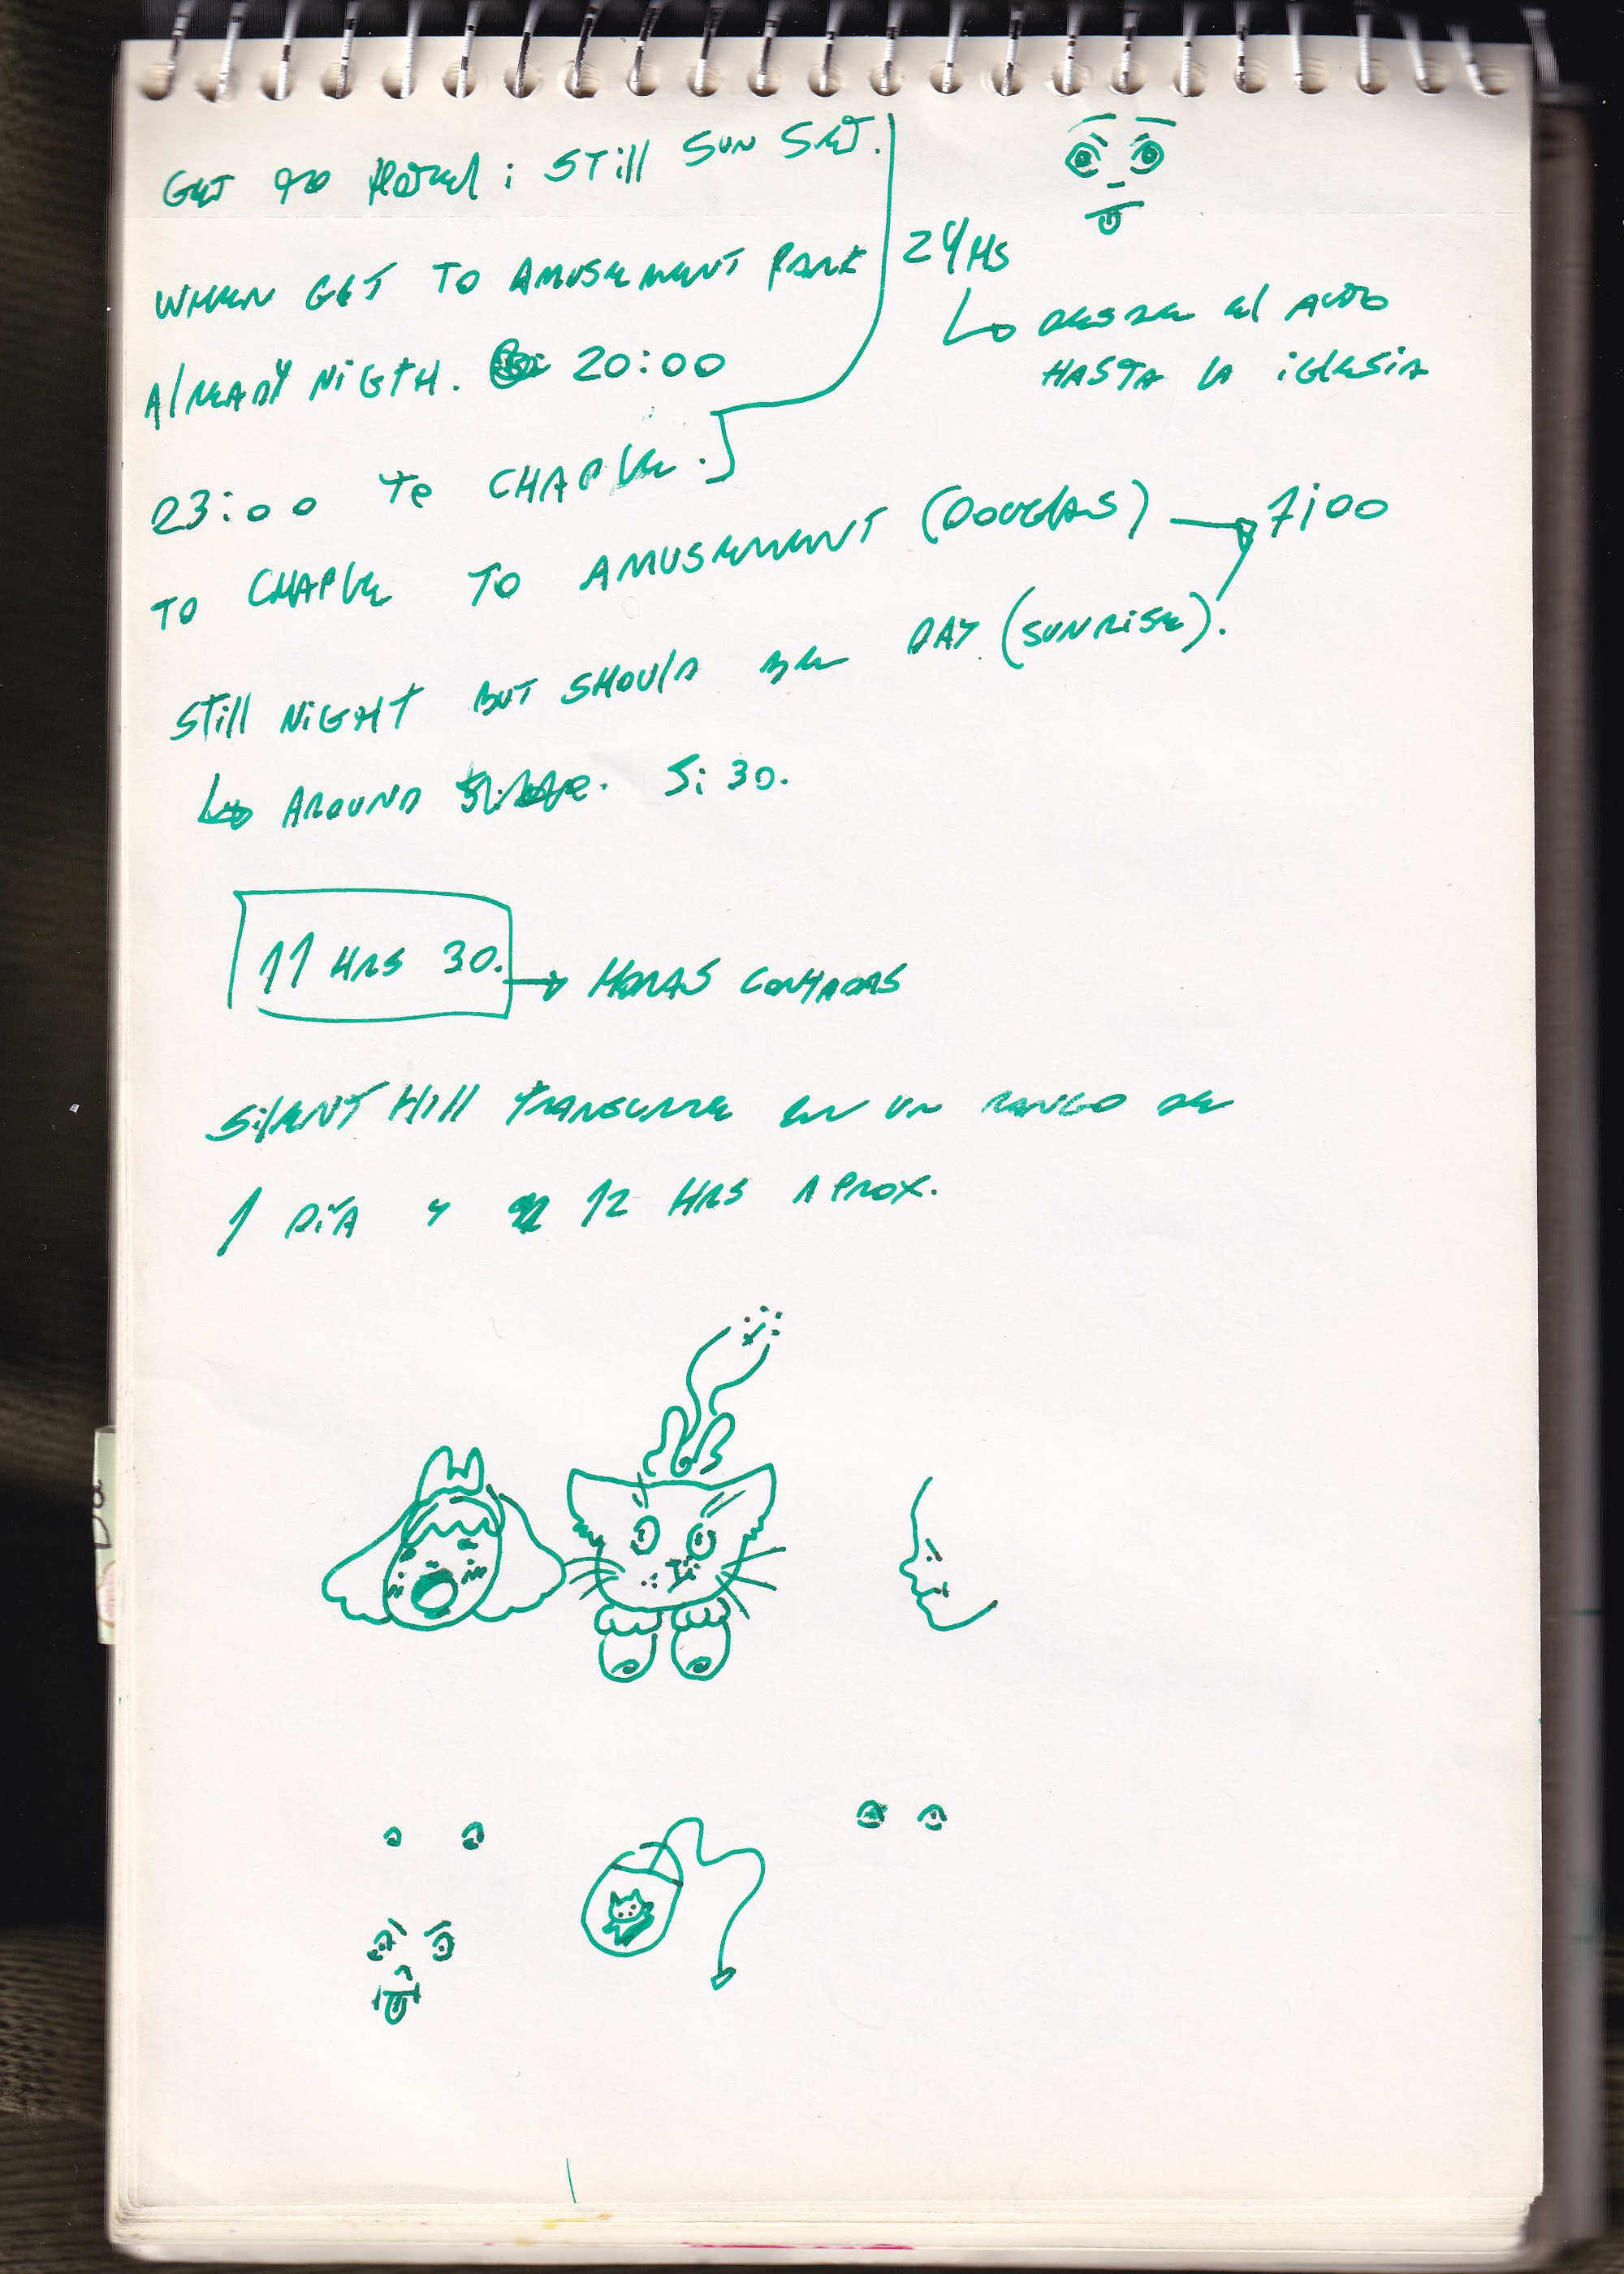 GET TO HOTEL: STill SUN SET.
WHEN GET TO AMUSEMENT PARK
AlREADY NIGTH. 20:00
23:00 Te CHAPLE.
24Hs
DESDE El AUTO
HASTA LA iGLESiA
TO CHAPLE TO AMUSEMENT (DOUGLAS) → 7:00
STill NiGHT BUT SHOUlD BE DAY (SUNRiSE).
↳ AROUND 5:30.
11 HRS 30. → HORAS CONTADAS
SilENT Hill TRANSCURRE EN UN RANGO DE
1 DÍA Y 12 HRS APROX.